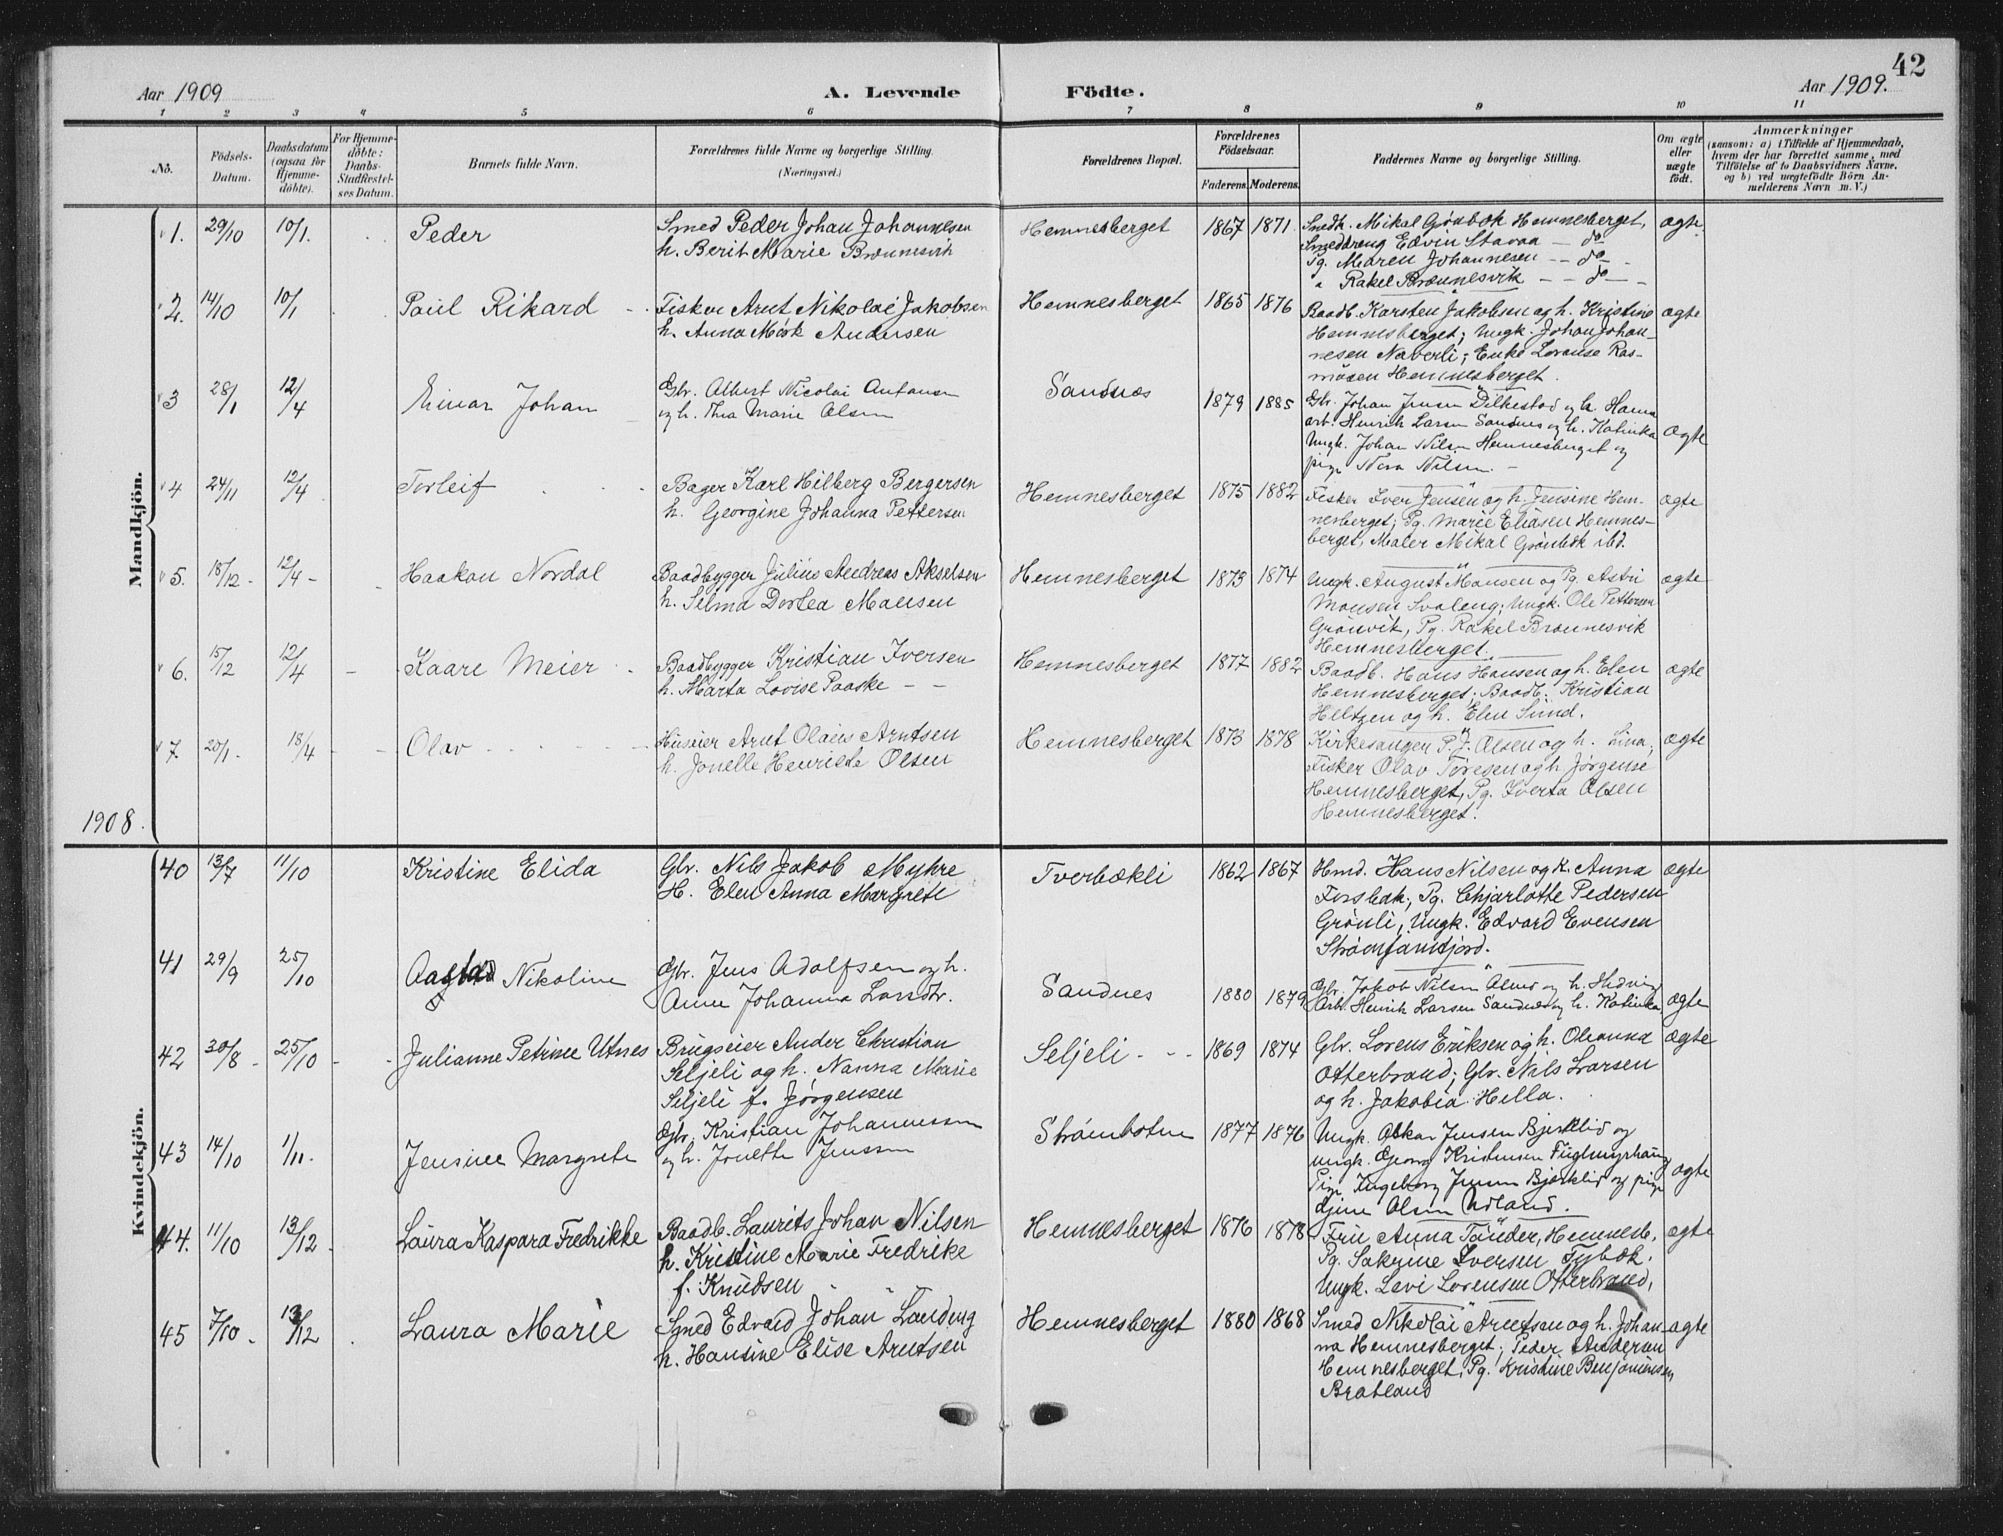 42
Aar 1909
A. Levende
Födte.
Aar 1909.
1 2 3 4 5 6 7 8 9 10 11
No.
Födsels-
Datum.
Daabsdatum
(ogsaa for
Hjemme-
döbte).
For Hjemme-
döbte:
Daabs-
Stadfæstel-
ses Datum.
Barnets fulde Navn.
Forældrenes fulde Navne og borgerlige Stilling.
(Næringsvei.)
Forældrenes Bopæl.
Forældrenes
Födselsaar.
Faderens.
Moderens.
Faddernes Navne og borgerlige Stilling.
Om ægte
eller
uægte
födt.
Anmærkninger
(saasom: a) i Tilfælde af Hjemmedaab,
hvem der har forrettet samme, med
Tilföielse af to Daabsvidners Navne,
og b) ved uægtefödte Börn An-
melderens Navn m. V.)
Mandkjön.
1. 29/10 10/1. Peder
Smed Peder Johan Johannesen
h. Berit Marie Brønnesvik
Hemnesberget 1867 1871
Smedk. Mikal Grönbæk Hemnesberget,
Smeddreng Edvin Stavaa — do
Pg. Maren Johannesen — do
" Rakel Brønnesvik — do
ægte
2. 14/10 10/1 Paul Rikard
Fisker Arnt Nikolai Jakobsen
h. Anna Mørk Andersen
Hemnesberget 1865 1876
Baadb. Karsten Jakobsen og h. Kristine
Hemnesberget; Ungk. Johan Johan-
nesen Naverli; Enke Lovense Ras-
musen Hemnesberget.
ægte
3 28/1 12/4 Einar Johan
Gbr. Albert Nicolai Antonsen
og h. Thea Marie Olsen
Sandnes 1879 1885
Gbr. Johan Jensen Dilkestad og h. Hanna
arb. Henrik Larsen Sandnes og h. Katinka
Ungk. Johan Nilsen Hemnesberget og
pige Nera Nilsen. —
ægte
4 24/11 12/4 Torleif
Bager Karl Hilberg Bergersen
h. Georgine Johanna Pettersen
Hemnesberget 1875 1882
Fisker Iver Jensen og h. Jensine Hem-
nesberget; Pg. Marie Eliasen Hemnes-
berget, Maler Mikal Grönbæk ibd.
ægte
5. 18/12 12/4 Haakon Nordal
Baadbygger Julius Andreas Akselsen
h. Selma Dortea Mansen
Hemnesberget 1873 1874
Ungk. August Mansen og Pg. Astri
Monsen Svaleng; Ungk. Ole Pettersen
Grönvik, Pg. Rakel Brønnesvik
Hemnesberget.
ægte
6. 15/12 12/4 Kaare Meier
Baadbygger Kristian Iversen
h. Marta Lovise Paaske — —
Hemnesberget 1877 1882
Baadb. Hans Hansen og h. Elen
Hemnesberget; Baadb. Kristian
Heltzen og h. Elen Sund.
ægte
7. 20/1 18/4 Olav
Huseier Arnt Olaus Arntsen
h. Jonelle Henriede Olsen
Hemnesberget 1873 1878
Kirkesanger P. J. Olsen og h. Lina,
Fisker Olav Toresen og h. Jörgense
Hemnesberget, Pg. Iverta Olsen
Hemnesberget.
ægte
1908.
Kvindekjön.
40 13/7 11/10 Kristine Elida
Gbr. Nils Jakob Myhre
H. Elen Anna Margrete
Tverbækli 1862 1867
Hmd. Hans Nilsen og k. Anna
Forsbak, Pg. Chjarlotte Pedersen
Grönli, Ungk. Edvard Evensen
Strømfarmfjord.
ægte
41 29/9 25/10 Nikoline
Gbr. Jens Adolfsen og h.
Anne Johanna Larsdtr.
Sandnes 1880 1879
Gbr. Jakob Nilsen Alma og h. Hedvig
Arb. Henrik Larsen Sandnes og h. Katinka
ægte
42 30/8 25/10 Julianne Petrine Utnes
Brugseier Ander Christian
Seljeli og h. Nanna Marie
Seljeli f. Jørgensen
Seljeli 1869 1874
Gbr. Lorens Eriksen og h. Oleanna
Otterbrand; Gbr. Nils Larsen
og h. Jakobia Hella.
ægte
43 14/10 1/11. Jensine Margrete
Gbr. Kristian Johannessen
og h. Jonette Jenssen
Strømbotn 1877 1876
Ungk. Oskar Jensen Bjerklid og
ungk. Georg Kristensen Fuglmyrhaug
Pige Ingeborg Jensen Bjerklid og pige
Olsen Udland.
ægte
44. 11/10 13/12 Laura Kaspara Fredrikke
Baadb. Laurits Johan Nilsen
h. Kristine Marie Fredrike
f. Knudsen
Hemnesberget 1876 1878
Fru Anna Tønder, Hemnesb.
Pg. Sakrine Iversen Fybæk.
Ungk. Levi Lorensen Otterbrand,
ægte
45 7/10 13/12 Laura Marie
Smed Edvard Johan Landeng
h. Hansine Elise Arntsen
Hemnesberget 1880 1868
Smed Nikolai Arntsen og h. Johan-
na Hemnesberget; Peder Andersen
Hemnesberget, Pg. Kristine Benjaminsen
Bratland
ægte